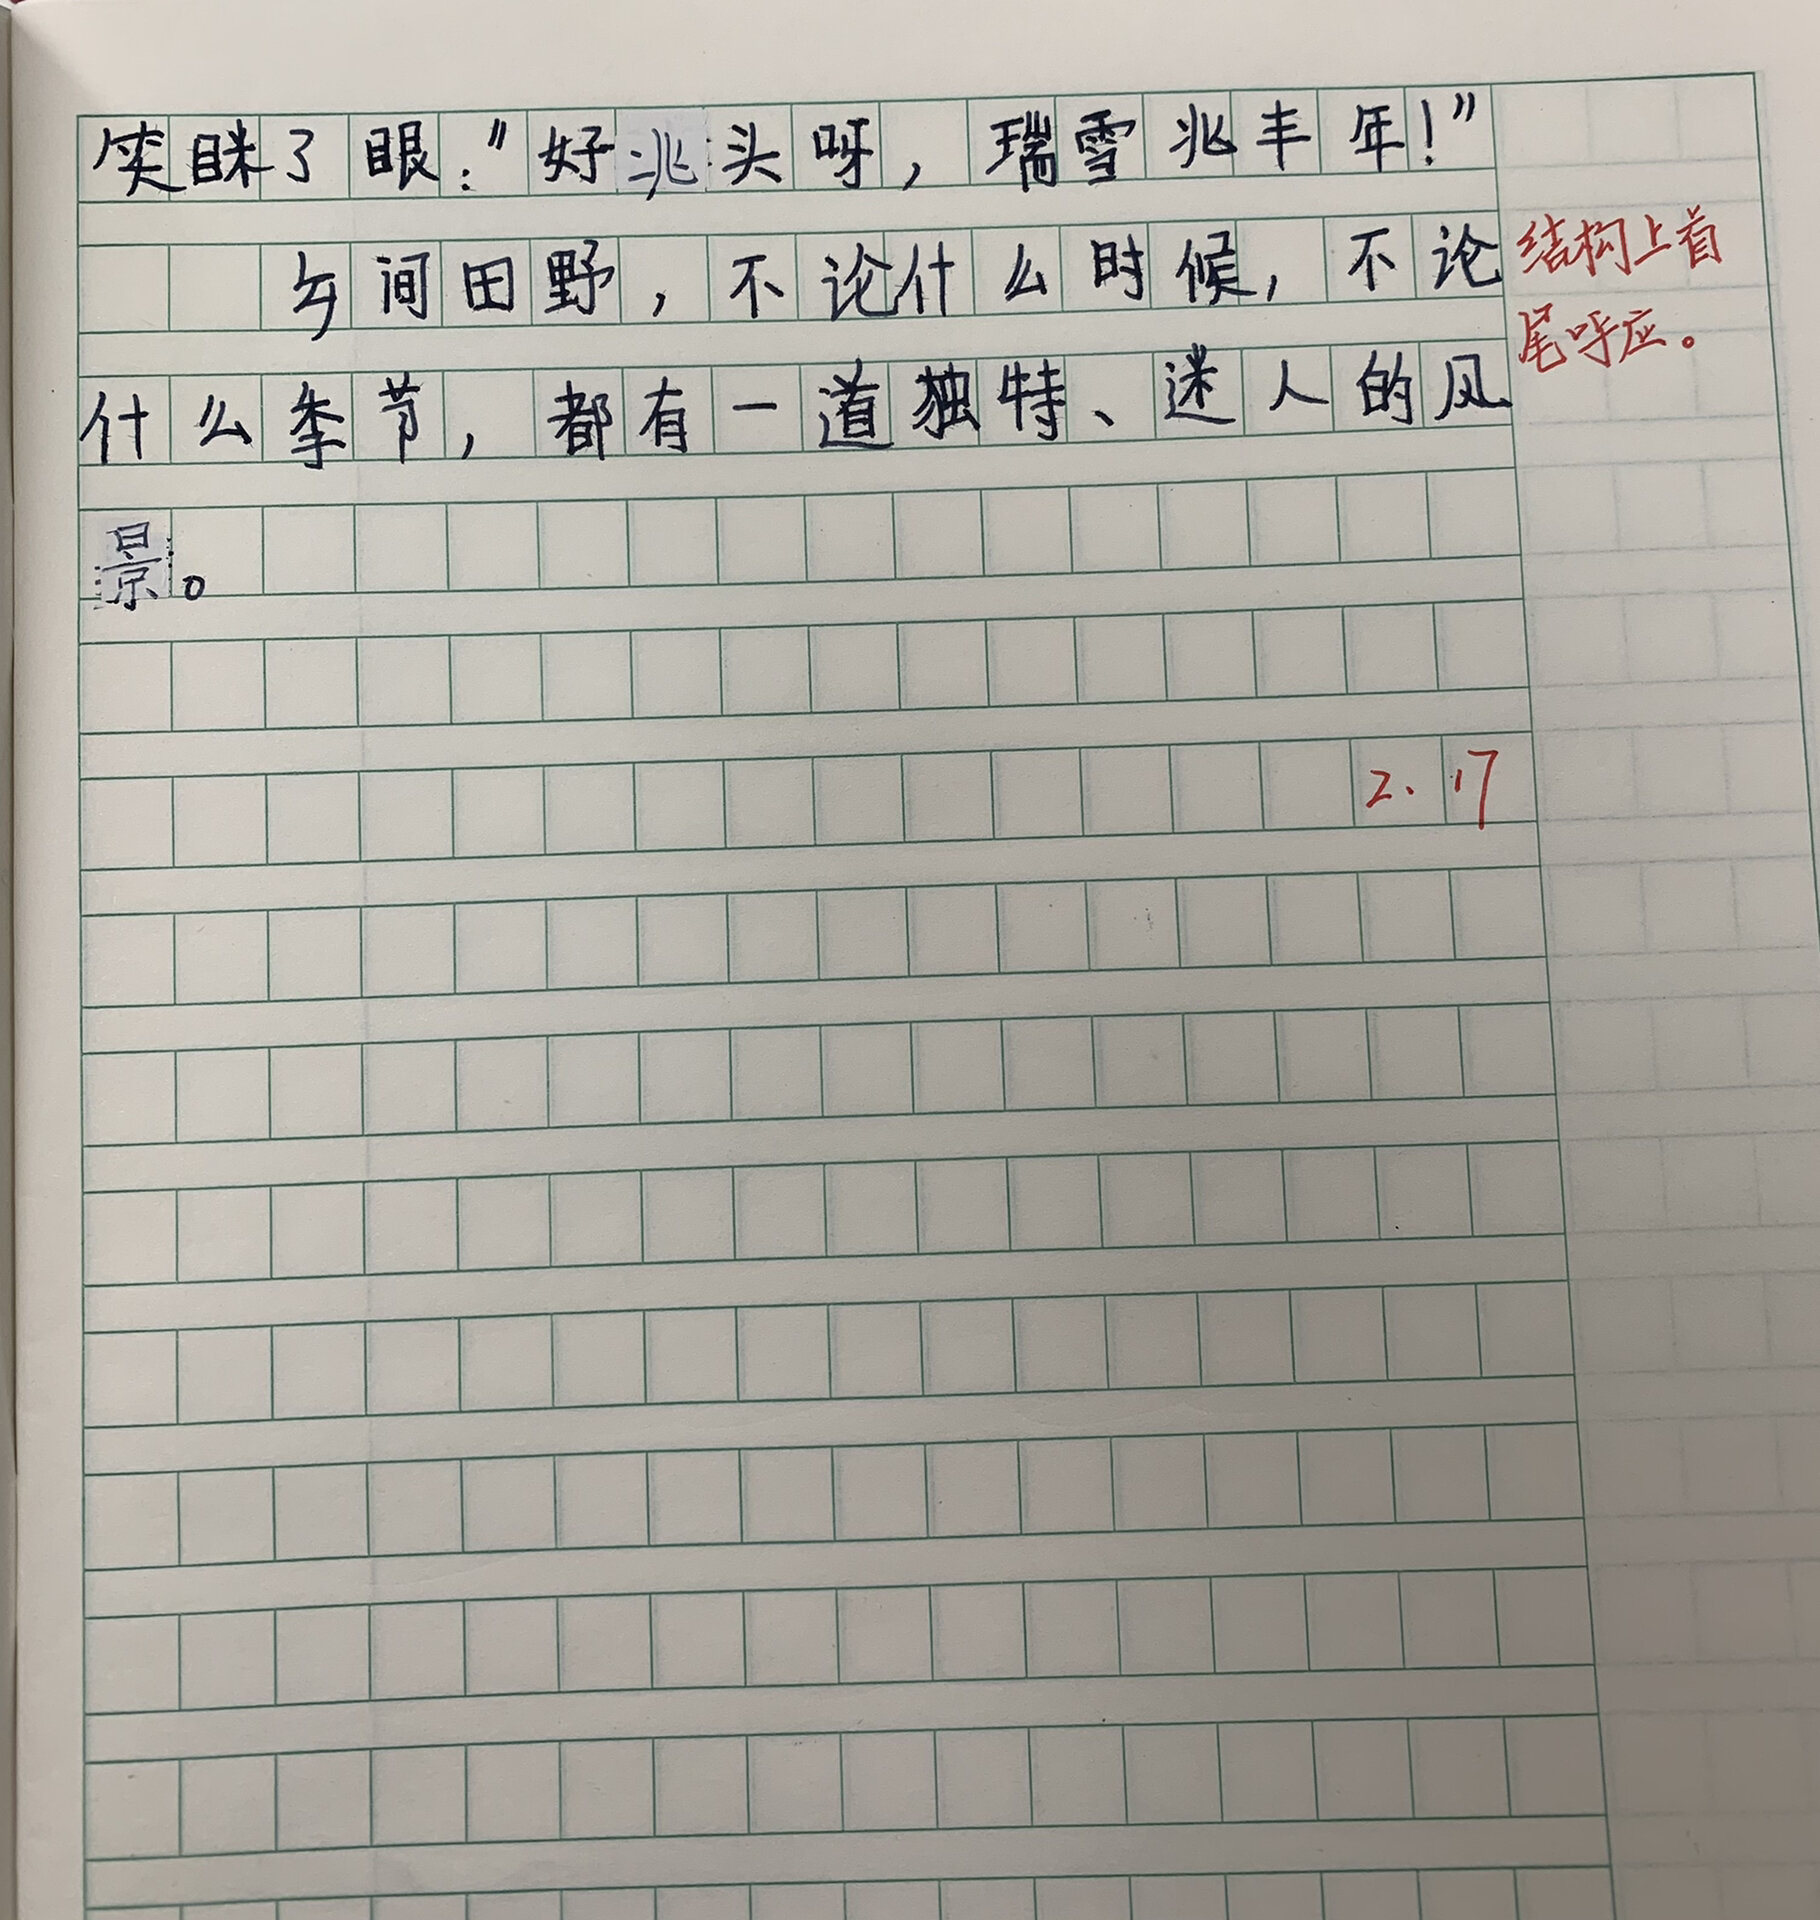 笑眯了眼：“好兆头呀，瑞雪兆丰年！”
乡间田野，不论什么时候，不论
什么季节，都有一道独特、迷人的风
景。
结构上首
尾呼应。
2.17